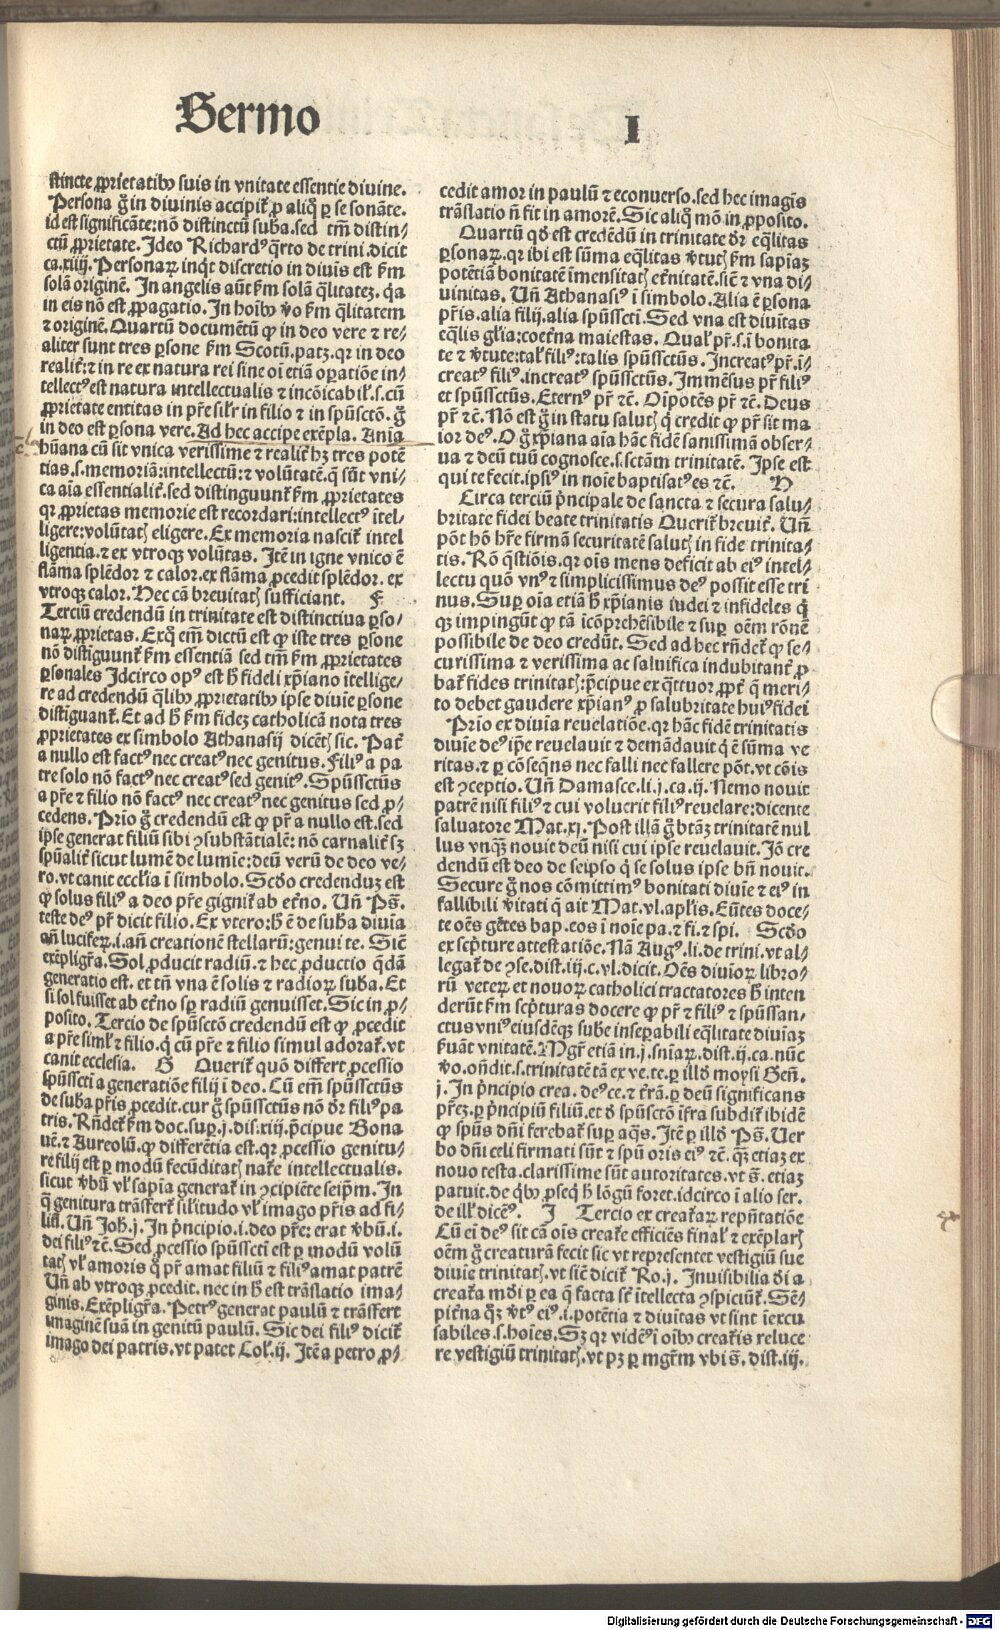 Sermo I
stincte ꝓprietatibꝰ suis in vnitate essentie diuine.
Persona gͦ in diuinis accipit᷑ ꝓ aliqͦ ꝑ se sonāte.
id est significāte: nō distinctū suba. sed tm̄ distin⸗
ctū ꝓprietate. Ideo Richardꝰ qͣrto de trini. dicit
ca. xiiij. Personaꝝ inqͥt discretio in diuis est ẜm
solā originē. In angelis aūt ẜm solā qͣlitatez. qͥa
in eis nō est ꝓpagatio. In hoībꝰ ꝟo ẜm qͣlitatem
⁊ originē. Quartū documētū ꝙ in deo vere ⁊ re⸗
aliter sunt tres ꝑsone ẜm Scotū. patz. qꝛ in deo
realit᷑: ⁊ in re ex natura rei sine oī etiā oꝑatiōe in⸗
tellectꝰ est natura intellectualis ⁊ incōicabil᷑. s. cū
ꝓprietate entitas in pr̄e sil᷑r in filio ⁊ in spūsctō. gͦ
in deo est ꝑsona vere. Ad hec accipe exēpla. Anīa
hūana cū sit vnica verissime ⁊ realit᷑ hꝫ tres potē
tias. s. memoriā: intellectū: ⁊ volūtatē. q̄ sūt vni⸗
ca aīa essentialit᷑. sed distinguunt᷑ ẜm ꝓprietates
qꝛ ꝓprietas memorie est recordari: intellectꝰ ītel⸗
ligere: volūtatꝭ eligere. Ex memoria nascit᷑ intel
ligentia. ⁊ ex vtroqꝫ volūtas. Itē in igne vnico ē
flāma splēdor ⁊ calor. ex flāma ꝓcedit splēdor. ex
vtroqꝫ calor. Hec cā breuitatꝭ sufficiant. F
Terciū credendū in trinitate est distinctiua ꝑso⸗
naꝝ ꝓprietas. Exqͦ em̄ dictū est ꝙ iste tres ꝑsone
nō distīguunt᷑ ẜm essentiā sed tm̄ ẜm ꝓprietates
ꝑsonales Idcirco opꝰ est h̄ fideli xp̄iano ītellige⸗
re ad credendū qͥlibꝰ ꝓprietatibꝰ ipse diuīe ꝑsone
distīguant᷑. Et ad h̄ ẜm fidez catholicā nota tres
ꝓprietates ex simbolo Athanasij dicētꝭ sic. Pat᷑
a nullo est factꝰ nec creatꝰ nec genitus. Filiꝰ a pa
tre solo nō factꝰ nec creatꝰ sed genitꝰ. Spūssctūs
a pr̄e ⁊ filio nō factꝰ nec creatꝰ nec genitus sed ꝓ⸗
cedens. Prīo gͦ credendū est ꝙ pr̄ a nullo est. sed
ipse generat filiū sibi ꝯsubstātialē: nō carnalit᷑ sꝫ
spūalit᷑ sicut lumē de lumīe: deū verū de deo ve⸗
ro. vt canit eccl̄ia ī simbolo. Scd̄o credenduz est
ꝙ solus filiꝰ a deo pr̄e gignit᷑ ab et᷑no. Vn̄ Ps̄.
teste deꝰ pr̄ dicit filio. Ex vtero: h̄ ē de suba diuīa
an̄ luciferꝝ. i. an̄ creationē stellarū: genui te. Sic̄
exēpligr̄a. Sol ꝓducit radiū. ⁊ hec ꝓductio qͥdā
generatio est. et tn̄ vna ē solis ⁊ radioꝝ suba. Et
si sol fuisset ab et᷑no sꝑ radiū genuisset. Sic in ꝓ⸗
posito. Tercio de spūsctō credendū est ꝙ ꝓcedit
a pr̄e siml᷑ ⁊ filio. qͥ cū pr̄e ⁊ filio simul adorat᷑. vt
canit ecclesia. G Querit᷑ quō differt ꝓcessio
spūsscti a generatiōe filij ī deo. Cū em̄ spūssctūs
de suba pr̄is ꝓcedit. cur gͦ spūssctūs nō dr̄ filiꝰ pa
tris. Rn̄det᷑ ẜm doc. suꝑ. j. dis. xiij. p̄cipue Bona
uē. ⁊ Aureolū. ꝙ differētia est. qꝛ ꝓcessio genitu⸗
re filij est ꝑ modū fecūditatꝭ nat᷑e intellectualis.
sicut ꝟbū vl᷑ sapīa generat᷑ in ꝯcipiēte seip̄m. In
qͣ genitura trāsfert᷑ silitudo vl᷑ imago pr̄is ad fi⸗
liū. Vn̄ Joh̄. j. In pͥncipio. i. deo pr̄e: erat ꝟbū. i.
dei filiꝰ ⁊c̄. Sed ꝓcessio spūsscti est ꝑ modū volū
tatꝭ vl᷑ amoris qͦ pr̄ amat filiū ⁊ filiꝰ amat patrē
Vn̄ ab vtroqꝫ ꝓcedit. nec in h̄ est trāslatio ima⸗
ginis. Exēpligr̄a. Petrꝰ generat paulū ⁊ trāsfert
imaginē suā in genitū paulū. Sic dei filiꝰ dicit᷑
imago dei patris. vt patet Col᷑. ij. Itē a petro ꝓ⸗
cedit amor in paulū ⁊ econuerso. sed hec imagīs
trāslatio n̄ fit in amorē. Sic aliqͦ mō in ꝓposito.
Quartū qd̄ est credēdū in trinitate dr̄ eqͣlitas
ꝑsonaꝝ. qꝛ ibi est sūma eqͣlitas ꝟtutꝭ ẜm sapīaz
potētiā bonitatē īmensitatꝭ et᷑nitatē. sic̄ ⁊ vna di⸗
uinitas. Vn̄ Athanasiꝰ ī simbolo. Alia ē ꝑsona
pr̄is. alia filij. alia spūsscti. Sed vna est diuītas
eqͣlis gl̄ia: coet᷑na maiestas. Qual᷑ pr̄. s. ī bonita
te ⁊ ꝟtute: tal᷑ filiꝰ: talis spūssctūs. Increatꝰ pr̄. ī⸗
creatꝰ filiꝰ. increatꝰ spūssctūs. Immēsus pr̄ filiꝰ
et spūssctūs. Eternꝰ pr̄ ⁊c̄. Oīpotēs pr̄ ⁊c̄. Deus
pr̄ ⁊c̄. Nō est gͦ in statu salutꝭ qͥ credit ꝙ pr̄ sit ma
ior deꝰ. O gͦ xp̄iana aīa hāc fidē sanissimā obser⸗
ua ⁊ deū tuū cognosce. s. sctām trinitatē. Ipse est
qui te fecit. ipsiꝰ in noīe baptisatꝰ es ⁊c̄. H
Circa terciū pͥncipale de sancta ⁊ secura salu⸗
britate fidei beate trinitatis Querit᷑ breuit᷑. Vn̄
pōt hō hr̄e firmā securitatē salutꝭ in fide trinita⸗
tis. Rō qͣstiōis. qꝛ oīs mens deficit ab eiꝰ intel⸗
lectu quō vnꝰ ⁊ simplicissimus deꝰ possit esse tri
nus. Suꝑ oīa etiā h̄ xp̄ianis iudei ⁊ infideles qͥ
qꝫ impingūt ꝙ tā icōprehēsibile ⁊ suꝑ oēm rōnē
possibile de deo credūt. Sed ad hec rn̄det᷑ ꝙ se⸗
curissima ⁊ verissima ac saluifica indubitant᷑ ꝓ
bat᷑ fides trinitatꝭ: p̄cipue ex qͣttuor. ꝓpt᷑ q̄ meri⸗
to debet gaudere xp̄ianꝰ ꝓ salubritate huiꝰ fidei
Prīo ex diuīa reuelatiōe. qꝛ hāc fidē trinitatis
diuīe deꝰ ip̄e reuelauit ⁊ demādauit qͥ ē sūma ve
ritas. ⁊ ꝑ cōseqn̄s nec falli nec fallere pōt. vt cōis
est ꝯceptio. Vn̄ Damasce. li. j. ca. ij. Nemo nouit
patrē nisi filiꝰ ⁊ cui voluerit filiꝰ reuelare: dicente
saluatore Mat. xj. Post illā gͦ btāz trinitatē nul
lus vnqͣꝫ nouit deū nisi cui ipse reuelauit. Jō cre
dendū est deo de seipso qͥ se solus ipse bn̄ nouit.
Secure gͦ nos cōmittimꝰ bonitati diuīe ⁊ eiꝰ in
fallibili ꝟitati q̄ ait Mat. vl. apl̄is. Eūtes doce⸗
te oēs gētes bap. eos ī noīe pa. ⁊ fi. ⁊ spi. Scd̄o
ex scp̄ture attestatiōe. Nā Augꝰ. li. de trini. vt al⸗
legat᷑ de ꝯse. dist. iij. c. vl. dicit. Oēs diuioꝝ libro⸗
rū veterꝝ et nouoꝝ catholici tractatores h̄ inten
derūt ẜm scp̄turas docere ꝙ pr̄ ⁊ filiꝰ ⁊ spūssan⸗
ctus vniꝰ eiusdēqꝫ sub̄e inseꝑabili eqͣlitate diuīaz
ẜuāt vnitatē. Mgr̄ etiā in. j. sniaꝝ. dist. ij. ca. nūc
ꝟo. on̄dit. s. trinitatē tā ex ve. te. ꝑ illd̄ moysi Gen̄.
j. In pͥncipio crea. deꝰ ce. ⁊ t᷑rā. ꝑ deū significans
pr̄ez. ꝑ pͥncipiū filiū. et d̄ spūsctō īfra subdit᷑ ibidē
ꝙ spūs dn̄i ferebat᷑ suꝑ aqͣs. Itē ꝑ illd̄ Ps̄. Ver
bo dn̄i celi firmati sūt ⁊ spū oris eiꝰ ⁊c̄. qꝫ etiaz ex
nouo testa. clarissime sūt autoritates. vt s̄. etiaz
patuit. de qͥbꝰ ꝓseqͥ h̄ lōgū foret. idcirco ī alio ser.
de ill᷑ dicēꝰ. J Tercio ex creat᷑aꝝ repn̄tatiōe
Cū ei deꝰ sit cā oīs creat᷑e efficiēs final᷑ ⁊ exēplarꝭ
oēm gͦ creaturā fecit sic vt representet vestigiū sue
diuīe trinitatꝭ. vt sic̄ dicit᷑ Ro. j. Inuisibilia d̄i a
creat᷑a mūdi ꝑ ea q̄ facta st̄ ītellecta ꝯspiciūt᷑. Sē⸗
pit᷑na qͦꝫ ꝟtꝰ eiꝰ. i. potētia ⁊ diuītas vt sint īexcu
sabiles. s. hoīes. Sꝫ qꝛ vidēꝰ ī oībꝰ creat᷑is reluce
re vestigiū trinitatꝭ. vt pꝫ ꝑ mgr̄m vbi s̄. dist. iij.
Digitalisierung gefördert durch die Deutsche Forschungsgemeinschaft - DFG